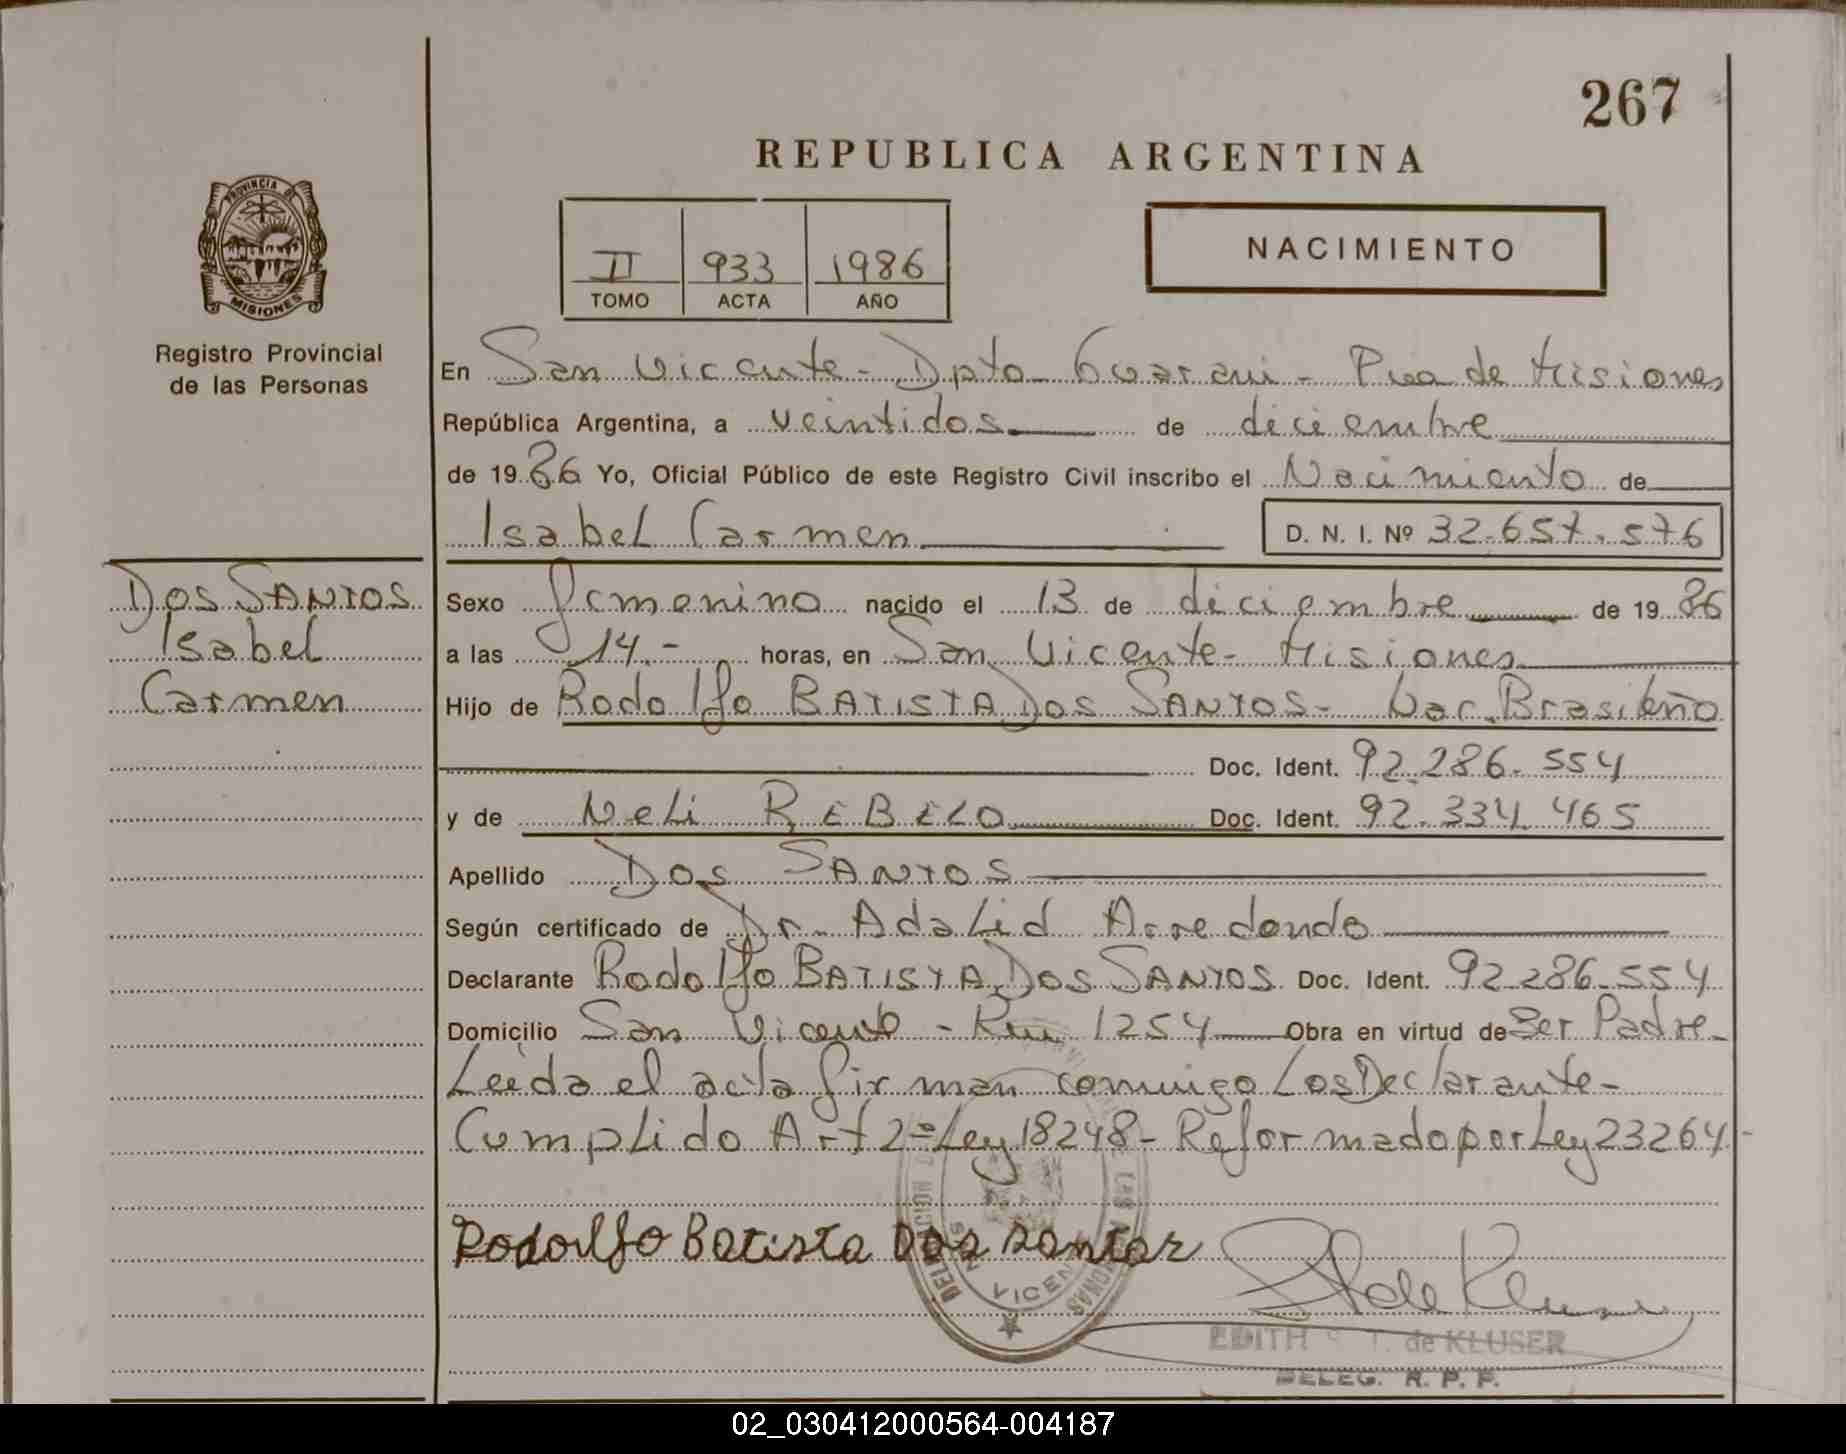 267
REPUBLICA ARGENTINA
PROVINCIA DE
MISIONES
Registro Provincial
de las Personas
II 933 1986
TOMO ACTA AÑO
NACIMIENTO
En San Vicente - Dpto Guarani - Pcia de Misiones
República Argentina, a veintidos de diciembre
de 1986 Yo, Oficial Público de este Registro Civil inscribo el Nacimiento de
Isabel Carmen D. N. I. Nº 32.657.576
Dos SANTOS
Isabel
Carmen
Sexo femenino nacido el 13 de diciembre de 1986
a las 14.- horas, en San Vicente - Misiones
Hijo de Rodolfo BATISTA Dos SANTOS - Nac. Brasileño
Doc. Ident. 92.286.554
y de Neli REBELO Doc. Ident. 92.334.465
Apellido Dos SANTOS
Según certificado de Dr. Adalid Arredondo
Declarante Rodolfo BATISTA Dos SANTOS Doc. Ident. 92.286.554
Domicilio San Vicente - Km 1254 Obra en virtud de Ser Padre -
Leida el acta firman conmigo Los Declarante -
Cumplido Art 2º Ley 18248 - Reformado por Ley 23264 -
Rodolfo Batista Dos Santos
VICENTE
EDITH T. de KLUSER
DELEG. R. P. P.
02_030412000564-004187